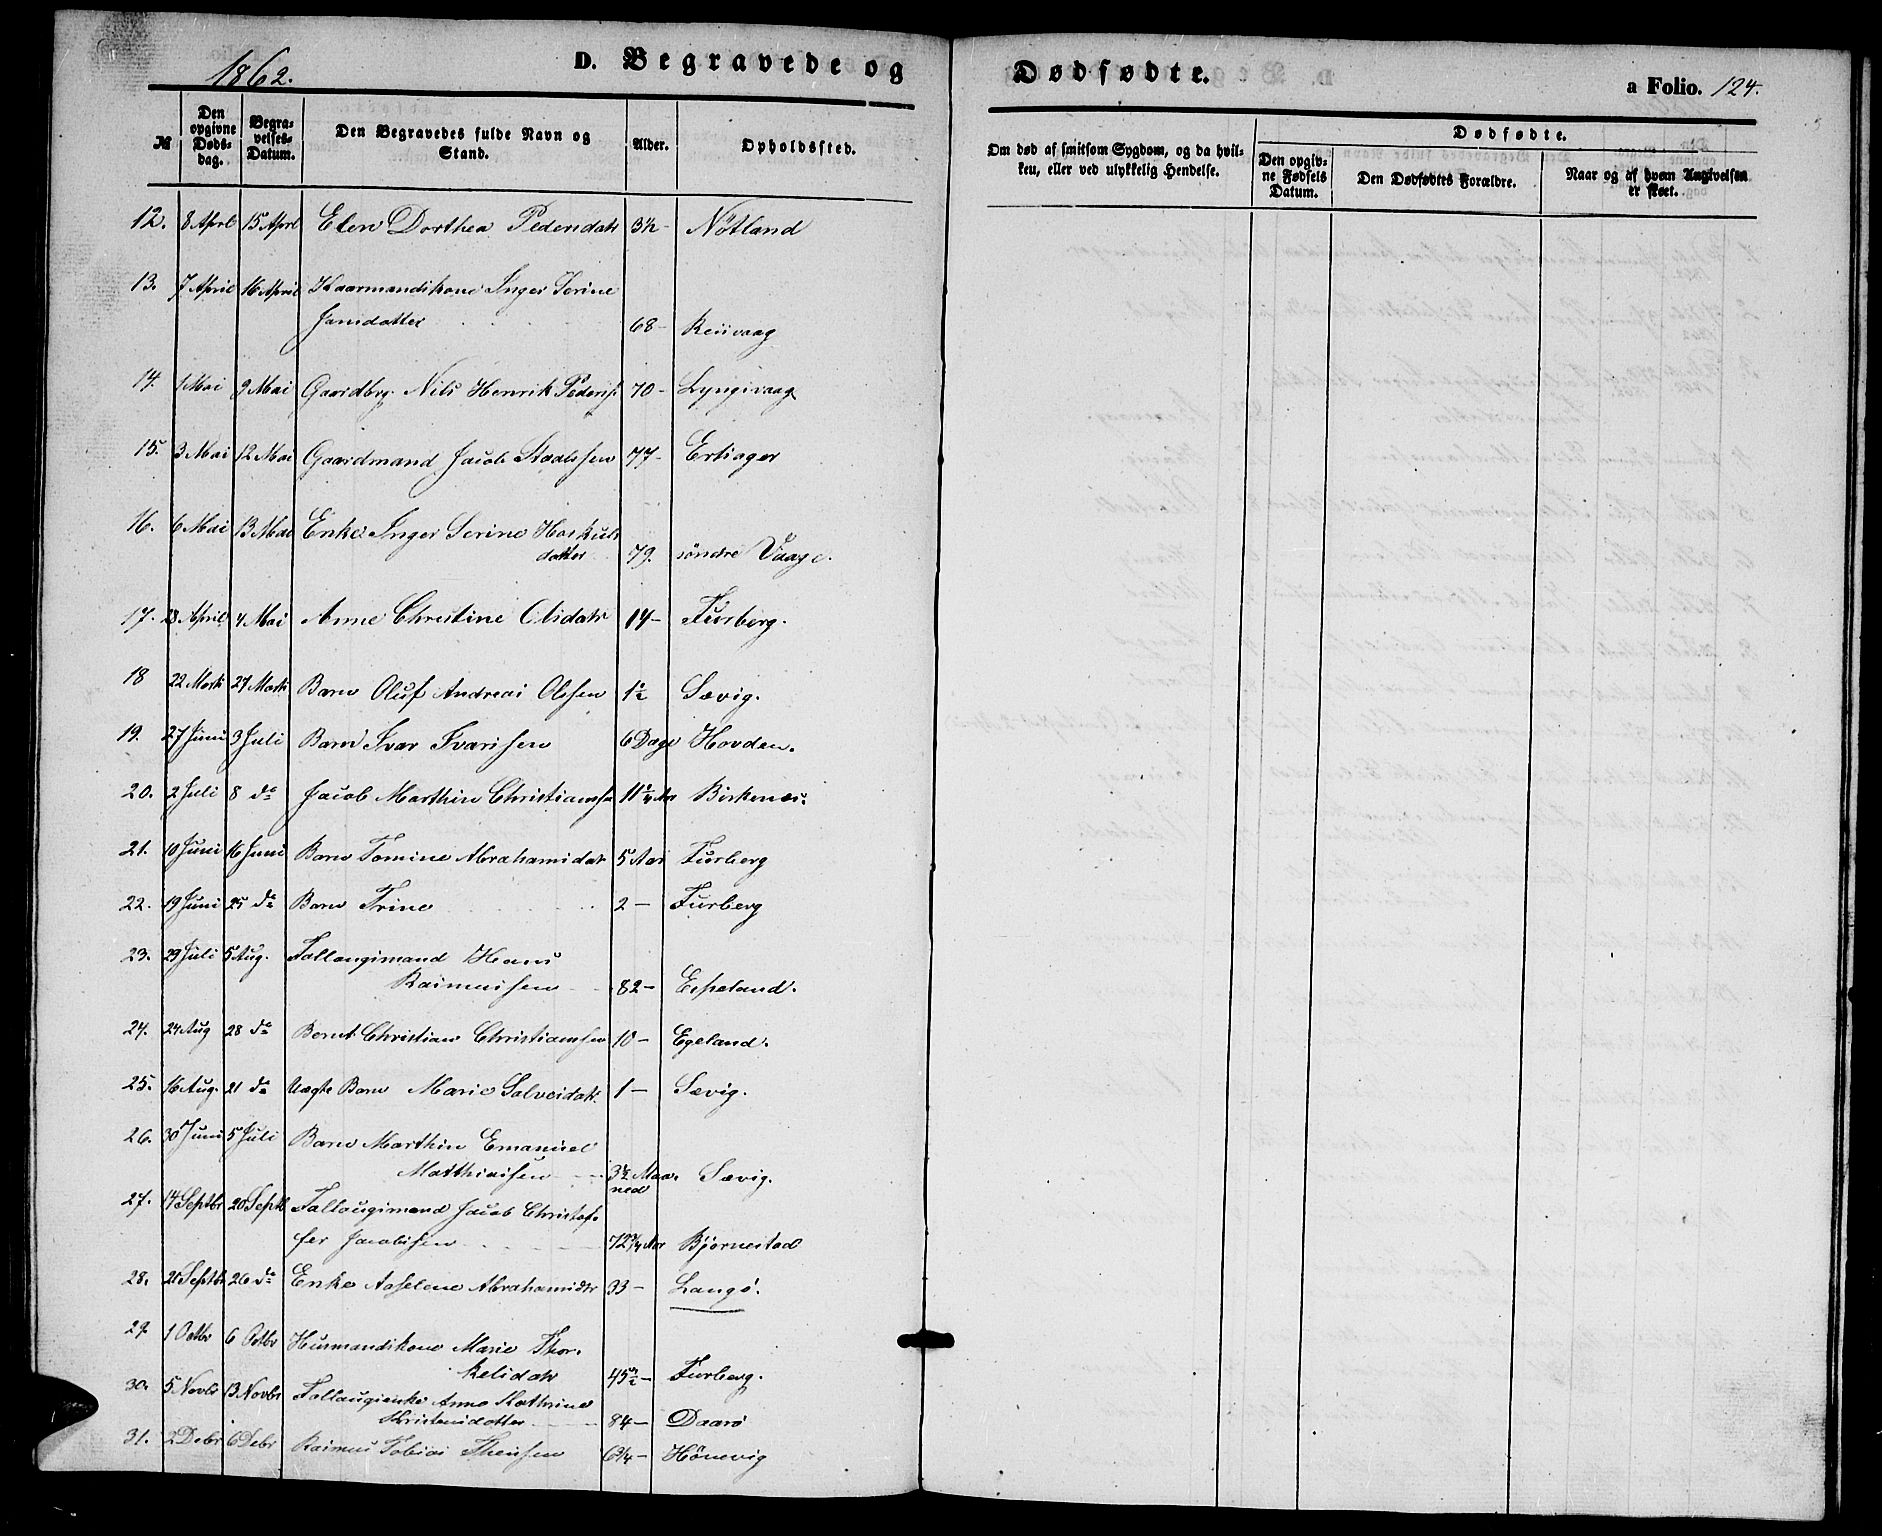 1862.
D. Begravede og
Dødfødte.
a Folio. 124.
№
Den opgivne Døds-dag.
Begra-velses-Datum.
Den Begravedes fulde Navn og Stand.
Alder.
Opholdssted.
Om død af smitsom Sygdom, og da hvil-
ken, eller ved ulykkelig Hendelse.
Dødfødte.
Den opgiv-ne Fødsels Datum.
Den Dødfødtes Forældre.
Naar og af hvem Angivelsen er skeet.
12. 8 April 15 April Elen Dorthea Pedersdatr 3½ - Nötland
13. 7 April 16 April Kaarmandskone Inger Serine
Jansdatter 68 - Reiivaag
14. 1 Mai 9 Mai Gaardbrg. Nils Henrik Peders. 70 - Lyngsvaag
15. 3 Mai 12 Mai Gaardmand Jacob Staalesen 77 - Ertzager
16. 6 Mai 13 Mai Enke Inger Serine Haskuls
datter 79. söndre Vaage.
17. 28 April 4 Mai Anne Christine Olsdatr 14 - Furberg.
18 22 Marts 27 Marts Barn Oluf Andreas Olsen 1½ Sævig.
19. 27 Juni 3 Juli Barn Ivar Ivarssen 6 Dage Hovden.
20. 2 Juli 8 do Jacob Marthin Christiansen 11 Aar Birkenes.
21. 10 Juni 16 Juni Barn Tomine Abrahamsdatr 5 Aar Furberg
22. 19 Juni 25 do Barn Trine 2 - Furberg
23. 29 Juli 5 Aug. Follaugsmand Hans
Rasmussen 82 - Espeland.
24. 24 Aug 28 do Bernt Christian Christiansen 10 - Egeland.
25. 16 Aug. 21 do Uægte Barn Marie Salvesdatr. 1 - Sævig.
26. 30 Juni 5 Juli Barn Marthin Emanuel
Matthiassen 3½ Maa-
ned Sævig.
27. 14 Septbr 20 Septb Follaugsmand Jacob Christof-
fer Jacobsen 72¾ Aar Bjornestad
28. 20 Septbr 26 do Enke Aaselene Abrahamsdtr 33 - Langö.
29. 1 Octbr 6 Octbr Husmandskone Marie Thor-
kelsdatr 45½ - Furberg.
30. 5 Novbr 13 Novbr Follaugsenke Anne Kathrine
Kristensdatter 84 - Daarö
31. 2 Debr 6 Debr Rasmus Tobias Thensen 6¼ - Hönevig